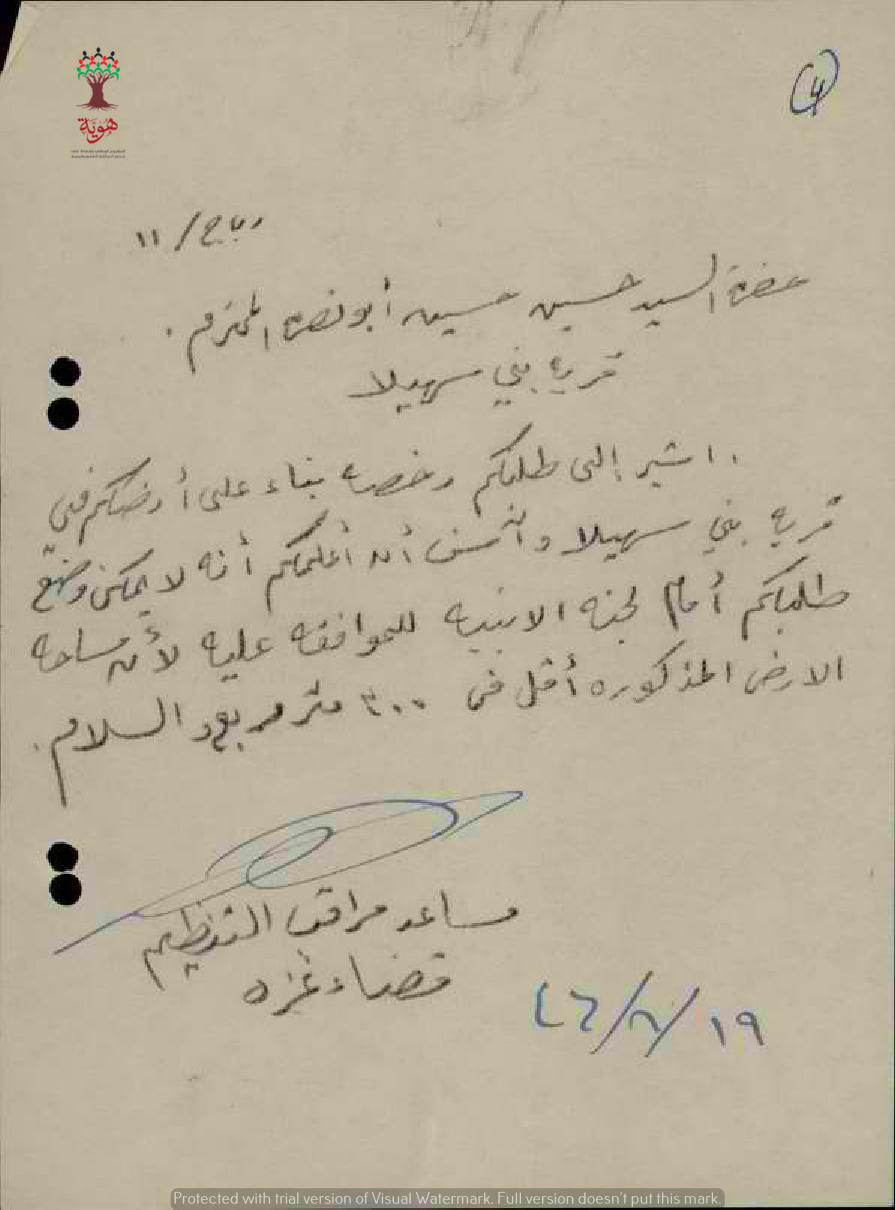 هوية
(٤)
ر ب/ع/١١
حضرة السيد حسين حسين أبو نصره المحترم .
قرية بني سهيلا
. اشير إلى طلبكم رخصة بناء على أرضكم في
قرية بني سهيلا وألتمس أن أعلمكم أنه لا يمكن وضع
طلبكم أمام لجنة الابنيه للموافقه عليه لأن مساحة
الارض المذكوره أقل من ٣٠٠ متر مربع و السلام .
مساعد مراقب التنظيم
قضاء غزه
١٩/٨/٤٦
Protected with trial version of Visual Watermark. Full version doesn't put this mark.